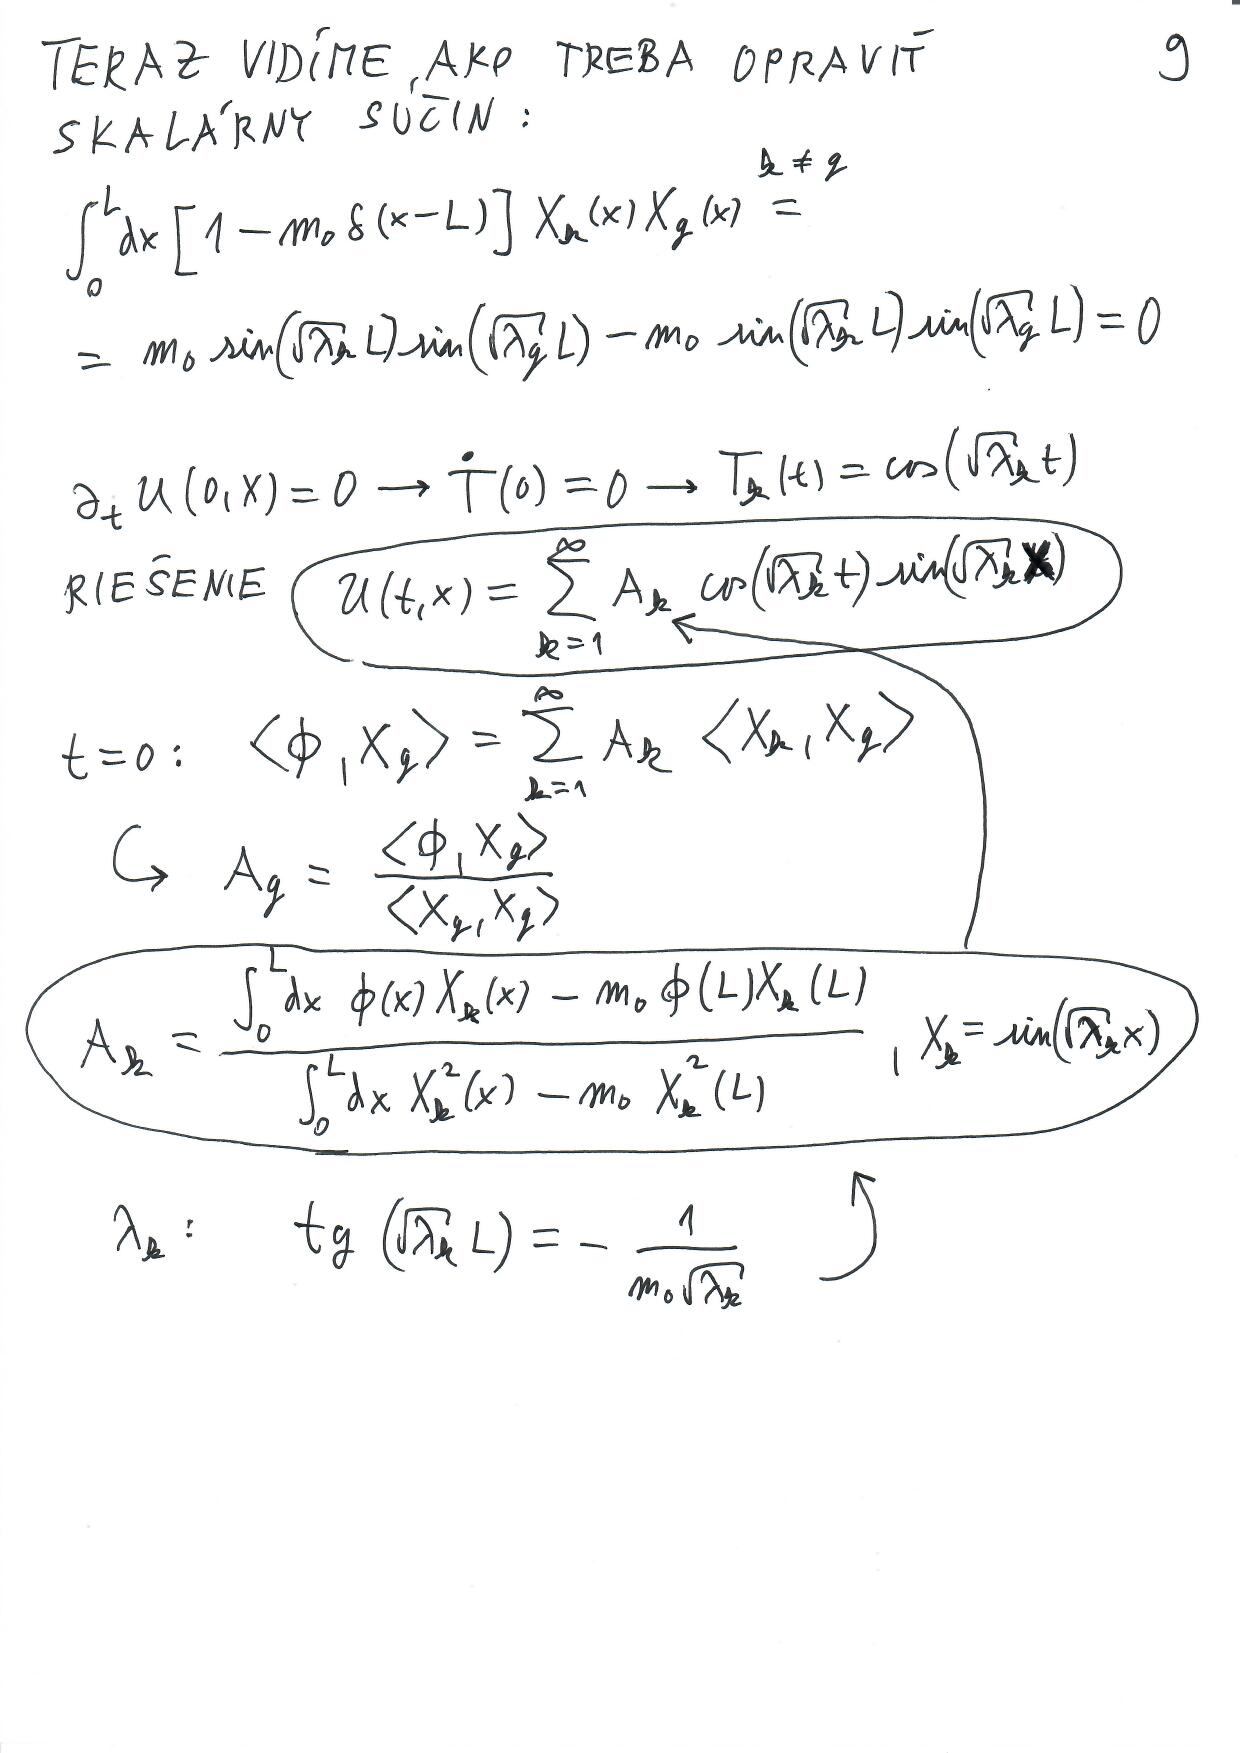 TERAZ VIDÍME, AKO TREBA OPRAVIŤ 9
SKALÁRNY SÚČIN:
∫₀ᴸ dx [1 − m₀ δ(x−L)] X_k(x) X_q(x) =^{k≠q}
= m₀ sin(√λ_k L) sin(√λ_q L) − m₀ sin(√λ_k L) sin(√λ_q L) = 0
∂_t u(0,x) = 0 → Ṫ(0) = 0 → T_k(t) = cos(√λ_k t)
RIEŠENIE u(t,x) = ∑_{k=1}^∞ A_k cos(√λ_k t) sin(√λ_k x)
t=0: ⟨ϕ, X_q⟩ = ∑_{k=1}^∞ A_k ⟨X_k, X_q⟩
↪ A_q = ⟨ϕ, X_q⟩ / ⟨X_q, X_q⟩
A_k = (∫₀ᴸ dx ϕ(x) X_k(x) − m₀ ϕ(L) X_k(L)) / (∫₀ᴸ dx X_k²(x) − m₀ X_k²(L)) , X_k = sin(√λ_k x)
λ_k: tg(√λ_k L) = − 1 / (m₀√λ_k)